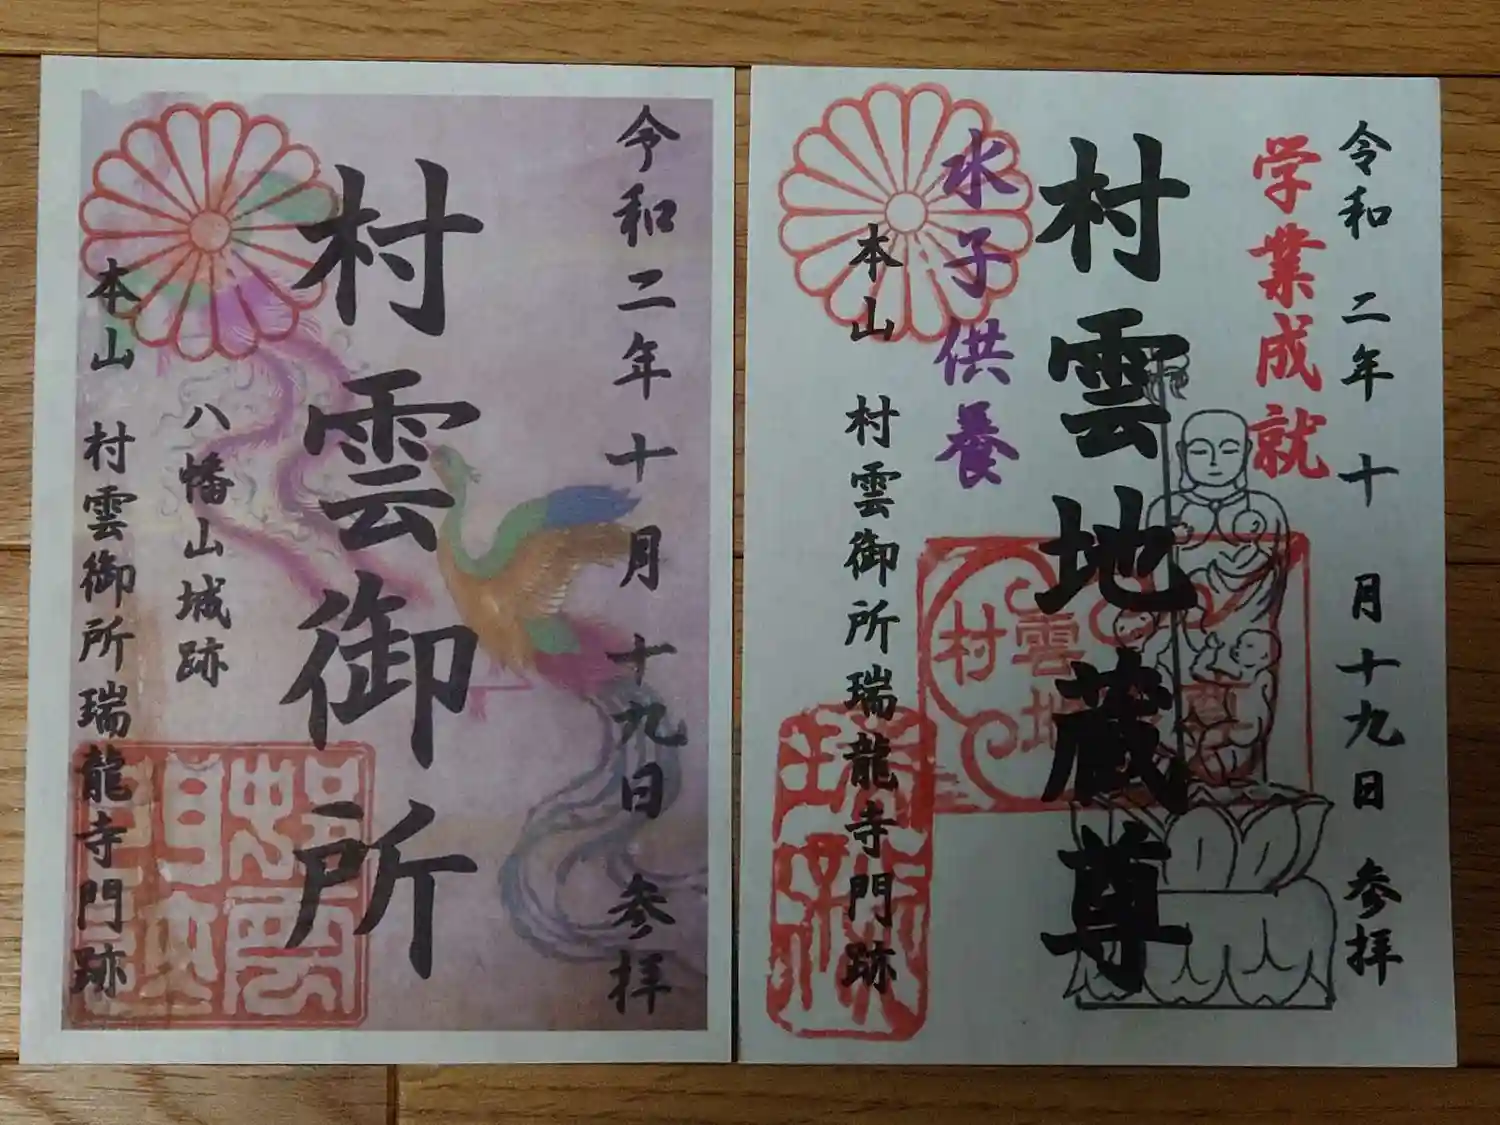 令和二年十月十九日 参拝
村雲御所
八幡山城跡
本山 村雲御所瑞龍寺門跡
令和二年十月十九日 参拝
学業成就
村雲地蔵尊
水子供養
本山 村雲御所瑞龍寺門跡
村雲地
尊